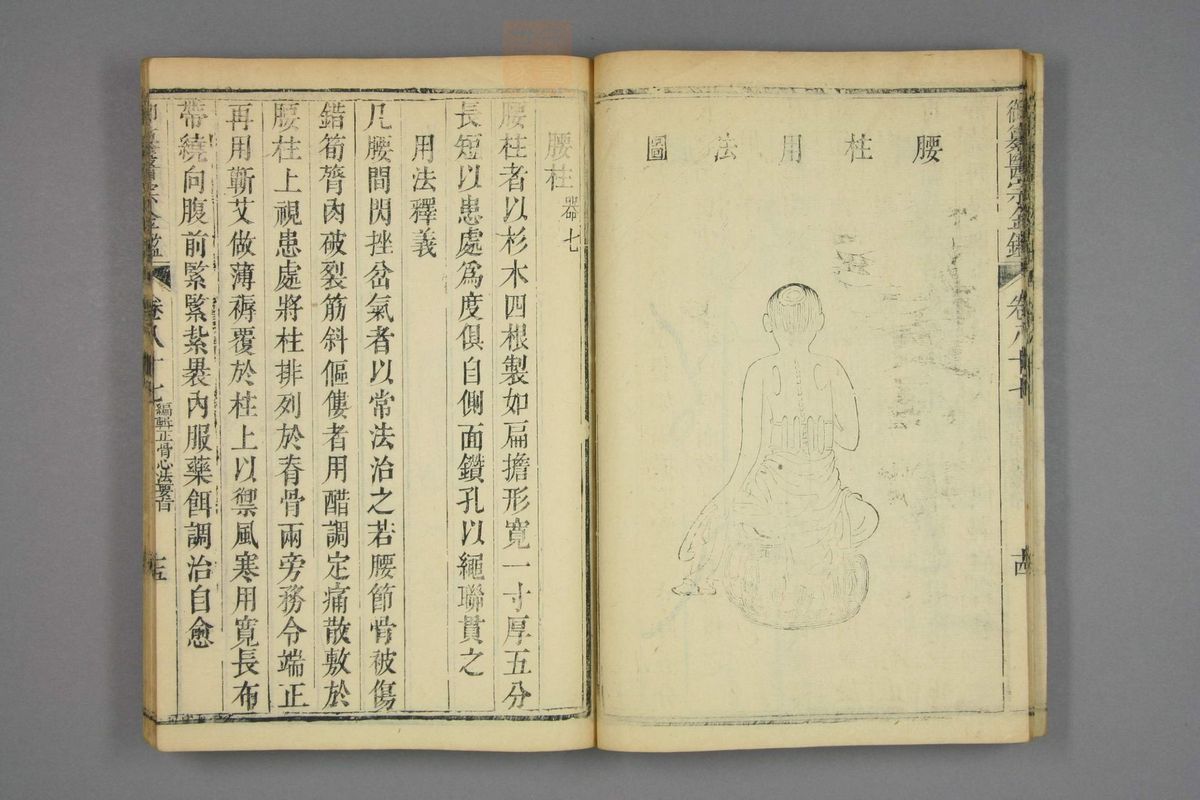 御纂醫宗金鑑
卷八十七
十四
腰柱用法圖
腰柱器七
腰柱者以杉木四根製如扁擔形寬一寸厚五分
長短以患處為度俱自側面鑽孔以繩聯貫之
用法釋義
凡腰間閃挫岔氣者以常法治之若腰節骨被傷
錯筍膂肉破裂筋斜傴僂者用醋調定痛散敷於
腰柱上視患處將柱排列於脊骨兩旁務令端正
再用蘄艾做薄褥覆於柱上以禦風寒用寬長布
帶繞向腹前緊緊紮裹內服藥餌調治自愈
卷八十七
編輯正骨心法要旨
十五